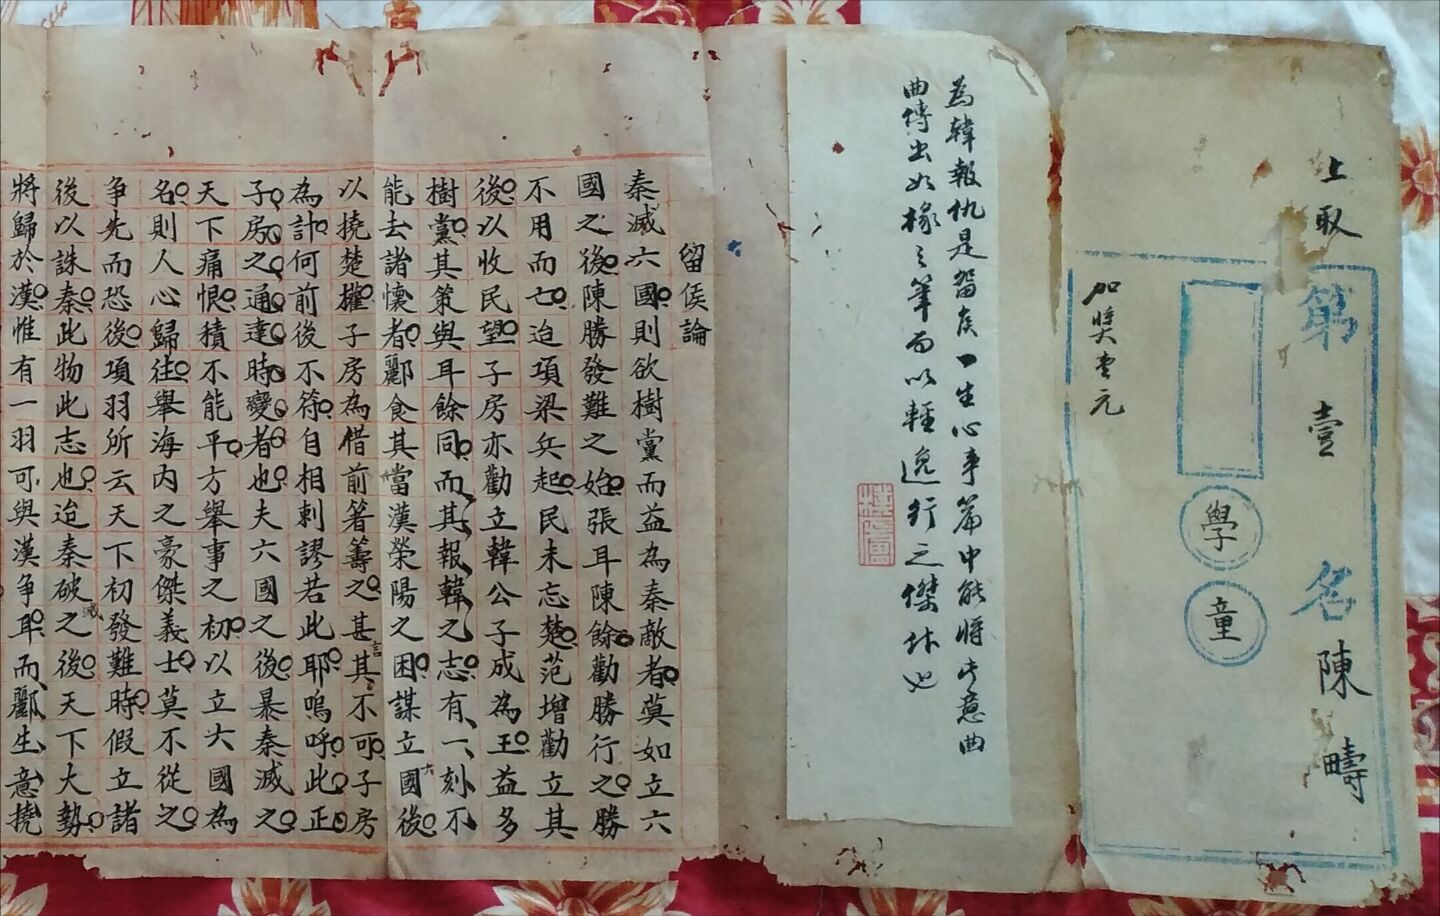 上取
第壹名陳疇
學
童
加獎壹元
為韓報仇是留侯一生心事篇中能將此意曲
曲傳出如椽之筆而以輕逸行之傑作也
留侯論
秦滅六國則欲樹黨而益為秦敵者莫如立六
國之後陳勝發難之始張耳陳餘勸勝行之勝
不用而亡迨項梁兵起民未忘楚范增勸立其
後以收民望子房亦勸立韓公子成為王益多
樹黨其策與耳餘同而其報韓之志有一刻不
能去諸懷者酈食其當漢榮陽之困謀立六國後
以撓楚權子房為借前箸籌之甚言其不可子房
為計何前後不符自相刺謬若此耶嗚呼此正
子房之通達時變者也夫六國之後暴秦滅之
天下痛恨積不能平方舉事之初以立六國為
名則人心歸往舉海內之豪傑義士莫不從之
爭先而恐後項羽所云天下初發難時假立諸
後以誅秦此物此志也迨秦破滅之後天下大勢
將歸於漢惟有一羽可與漢爭耳而酈生意撓